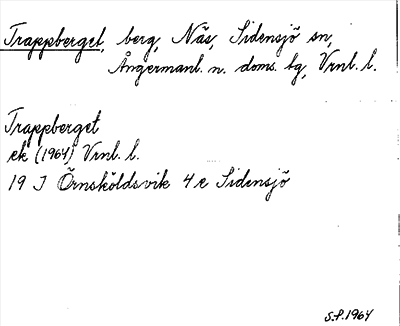 Trappberget, berg, Näs, Sidensjö sn,
Ångermanl. n. doms. hg, Vrnl. l.
Trappberget
ek (1964) Vrnl. l.
19 J Örnsköldsvik 4 e Sidensjö
S.P. 1964